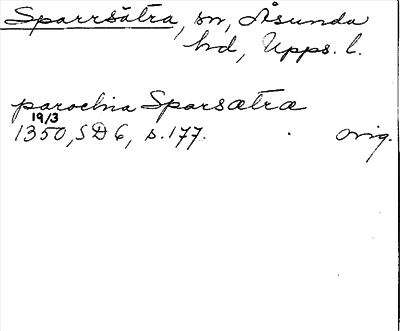 Sparrsätra, sn, Åsunda
hd, Upps. l.
parochia Sparsætræ
19/3
1350, SD 6, s. 177. orig.